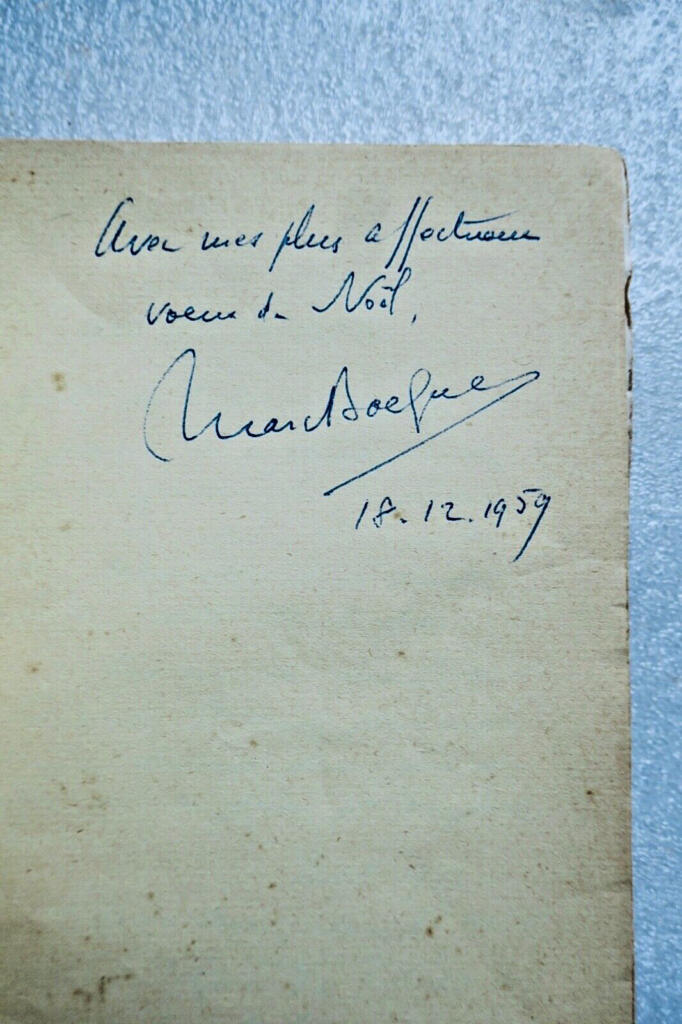 Avec mes plus affectueux
voeux de Noël,
Marc Boegner
18.12.1959